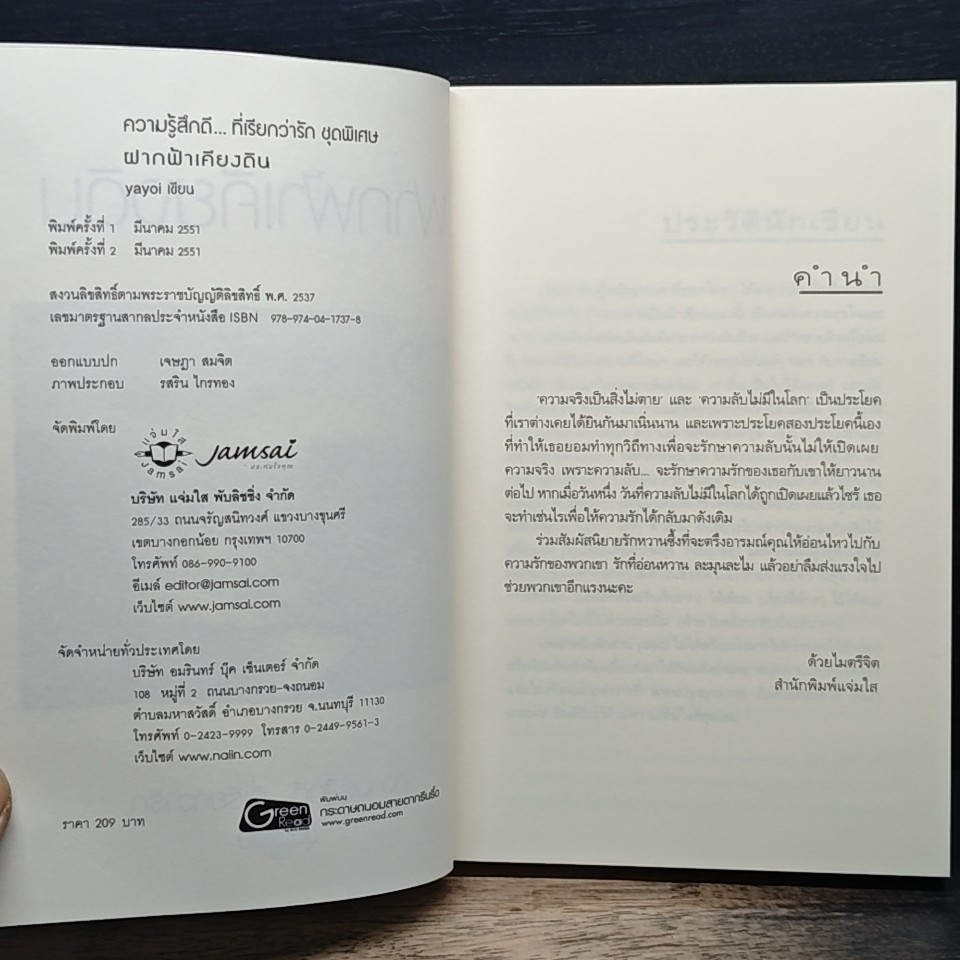 ความรู้สึกดี... ที่เรียกว่ารัก ชุดพิเศษ
ฝากฟ้าเคียงดิน
yayoi เขียน
พิมพ์ครั้งที่ 1 มีนาคม 2551
พิมพ์ครั้งที่ 2 มีนาคม 2551
สงวนลิขสิทธิ์ตามพระราชบัญญัติลิขสิทธิ์ พ.ศ. 2537
เลขมาตรฐานสากลประจำหนังสือ ISBN 978-974-04-1737-8
ออกแบบปก เจษฎา สมจิต
ภาพประกอบ รสริน ไกรทอง
จัดพิมพ์โดย
แจ่มใส
Jamsai
Jamsai
บริษัท แจ่มใส พับลิชชิ่ง จำกัด
285/33 ถนนจรัญสนิทวงศ์ แขวงบางขุนศรี
เขตบางกอกน้อย กรุงเทพฯ 10700
โทรศัพท์ 086-990-9100
อีเมล์ editor@jamsai.com
เว็บไซต์ www.jamsai.com
จัดจำหน่ายทั่วประเทศโดย
บริษัท อมรินทร์ บุ๊ค เซ็นเตอร์ จำกัด
108 หมู่ที่ 2 ถนนบางกรวย-จงถนอม
ตำบลมหาสวัสดิ์ อำเภอบางกรวย จ.นนทบุรี 11130
โทรศัพท์ 0-2423-9999 โทรสาร 0-2449-9561-3
เว็บไซต์ www.naiin.com
ราคา 209 บาท
Green Read
พิมพ์บน
กระดาษถนอมสายตากรีนรี้ด
www.greenread.com
คำนำ
'ความจริงเป็นสิ่งไม่ตาย' และ 'ความลับไม่มีในโลก' เป็นประโยค
ที่เราต่างเคยได้ยินกันมาเนิ่นนาน และเพราะประโยคสองประโยคนี้เอง
ที่ทำให้เธอยอมทำทุกวิถีทางเพื่อจะรักษาความลับนั้นไม่ให้เปิดเผย
ความจริง เพราะความลับ... จะรักษาความรักของเธอกับเขาให้ยาวนาน
ต่อไป หากเมื่อวันหนึ่ง วันที่ความลับไม่มีในโลกได้ถูกเปิดเผยแล้วไซร้ เธอ
จะทำเช่นไรเพื่อให้ความรักได้กลับมาดังเดิม
ร่วมสัมผัสนิยายรักหวานซึ้งที่จะตรึงอารมณ์คุณให้อ่อนไหวไปกับ
ความรักของพวกเขา รักที่อ่อนหวาน ละมุนละไม แล้วอย่าลืมส่งแรงใจไป
ช่วยพวกเขาอีกแรงนะคะ
ด้วยไมตรีจิต
สำนักพิมพ์แจ่มใส